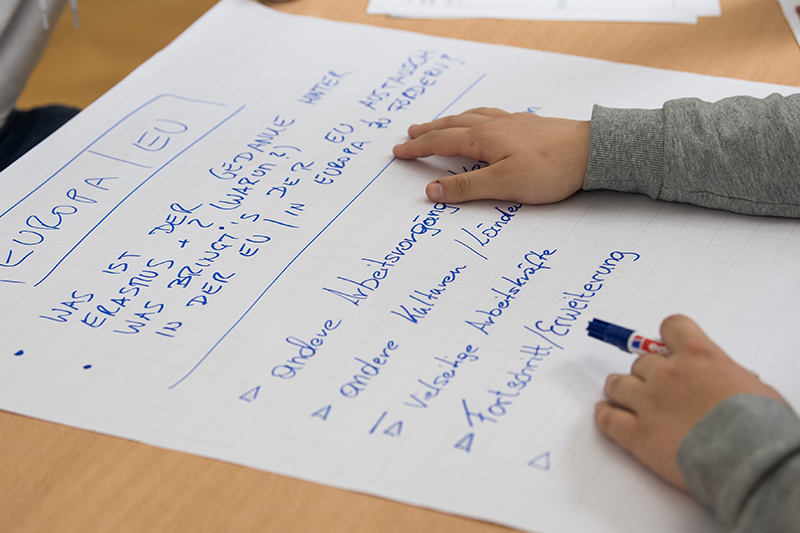 EUROPA / EU
• WAS IST DER GEDANKE HINTER
ERASMUS + ? (WARUM?)
• WAS BRINGT'S DER EU AUSTAUSCH
IN DER EU / IN EUROPA ZU FÖRDERN?
▷ andere Arbeitsvorgäng
▷ andere Kulturen / Länder
▷ Vielseitige Arbeitskräfte
▷ Fortschritt/Erweiterung
▷